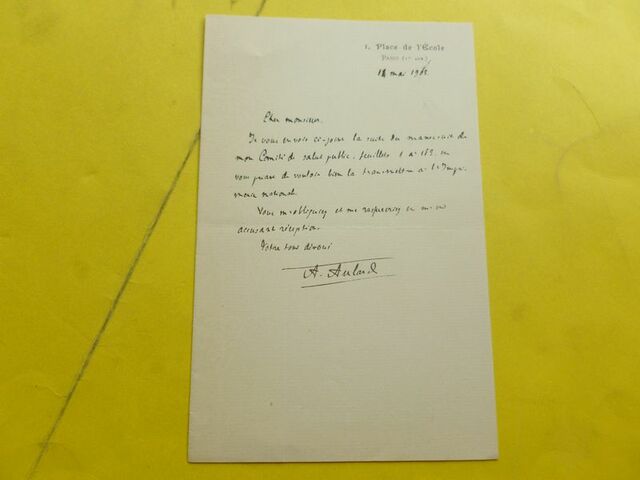 1, Place de l'École
Paris (1er arr.)
14 mai 1903
Cher monsieur,
Je vous envoie ci-joint la suite du manuscrit de
mon Comité de salut public, feuillets 1 à 163, en
vous priant de vouloir bien la transmettre à l'Impri-
merie nationale.
Vous m'obligeriez et me rassureriez en m'en
accusant réception.
Votre tout dévoué
A. Aulard